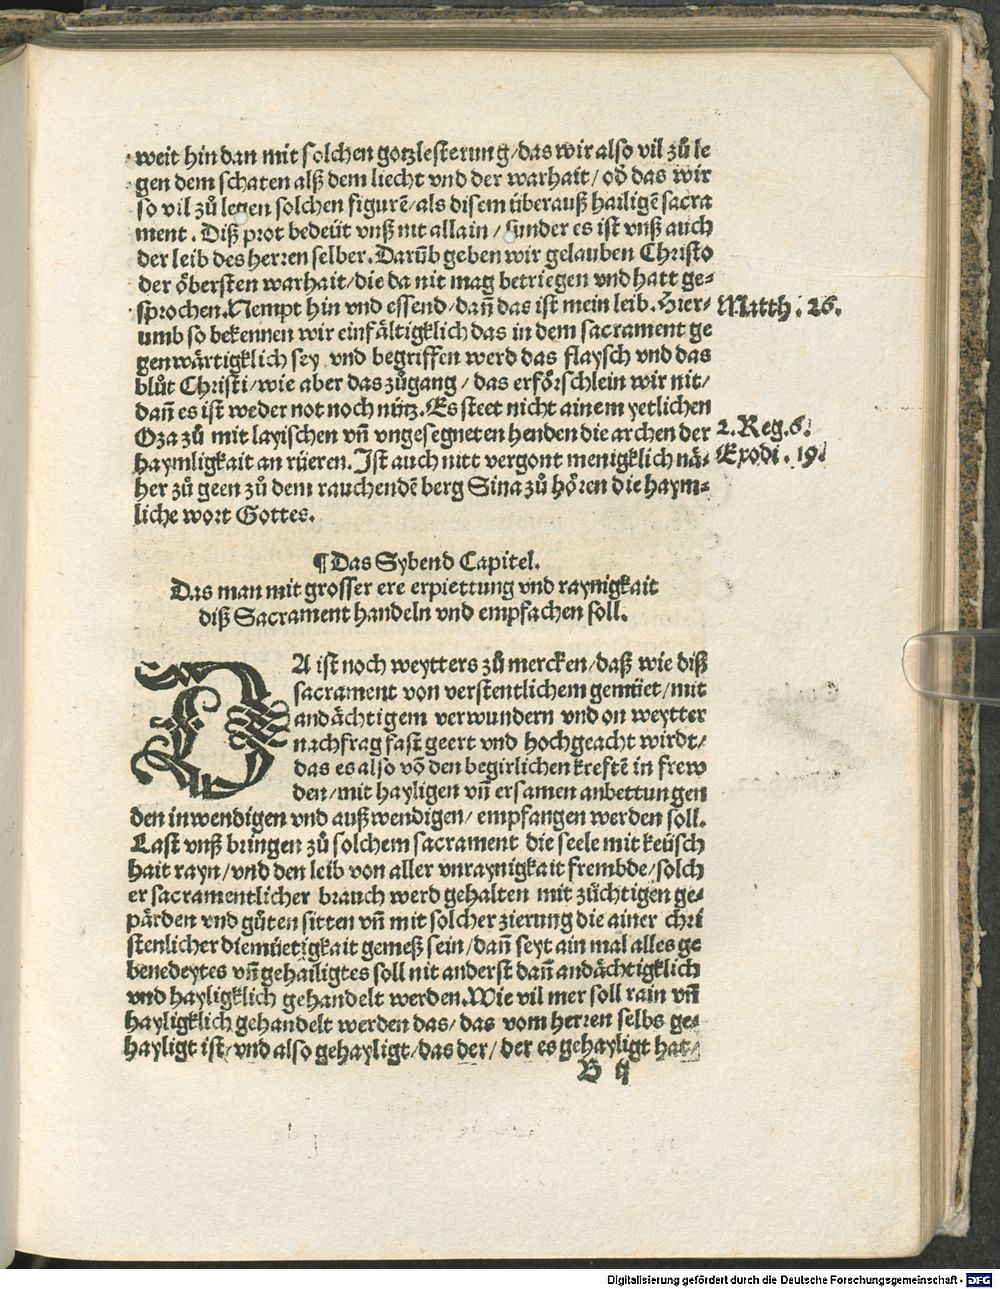 weit hin dan mit solchen gotzlesterung/das wir also vil zů le
gen dem schaten alß dem liecht vnd der warhait/ od̕ das wir
so vil zů legen solchen figurē/als disem überauß hailigē sacra
ment. Diß prot bedeüt vnß nit allain /sunder es ist vnß auch
der leib des herren selber. Darūb geben wir gelauben Christo
der öbersten warhait/die da nit mag betriegen vnd hatt ge⸗
sprochen. Nempt hin vnd essend/dañ das ist mein leib. Hier⸗
Matth. 26.
umb so bekennen wir einfältigklich das in dem sacrament ge
genwärtigklich sey vnd begriffen werd das flaysch vnd das
blůt Christi/wie aber das zůgang/das erförschlein wir nit/
dañ es ist weder not noch nütz. Es steet nicht ainem yetlichen
Oza zů mit layischen vñ vngesegneten henden die archen der
2. Reg. 6.
haymligkait an rüeren. Ist auch nitt vergont menigklich nä⸗
Exodi. 19.
her zů geen zů dem rauchendē berg Sina zů hören die haym⸗
liche wort Gottes.
¶ Das Sybend Capitel.
Das man mit grosser ere erpiettung vnd raynigkait
diß Sacrament handeln vnd empfachen soll.
DA ist noch weytters zů mercken/daß wie diß
sacrament von verstentlichem gemüet/mit
andächtigem verwundern vnd on weytter
nachfrag fast geert vnd hochgeacht wirdt/
das es also vō den begirlichen kreftē in frew
den/mit hayligen vñ ersamen anbettungen
den inwendigen vnd außwendigen/ empfangen werden soll.
Last vnß bringen zů solchem sacrament die seele mit keüsch
hait rayn/vnd den leib von aller vnraynigkait frembde/solch
er sacramentlicher brauch werd gehalten mit züchtigen ge⸗
pärden vnd gůten sitten vñ mit solcher zierung die ainer chri
stenlicher diemüetigkait gemeß sein/dañ seyt ain mal alles ge
benedeytes vñ gehailigtes soll nit anderst dañ andächtigklich
vnd hayligklich gehandelt werden. Wie vil mer soll rain vñ
hayligklich gehandelt werden das/das vom herren selbs ge⸗
hayligt ist/vnd also gehayligt/das der/der es gehayligt hat/
B ij
Digitalisierung gefördert durch die Deutsche Forschungsgemeinschaft - DFG